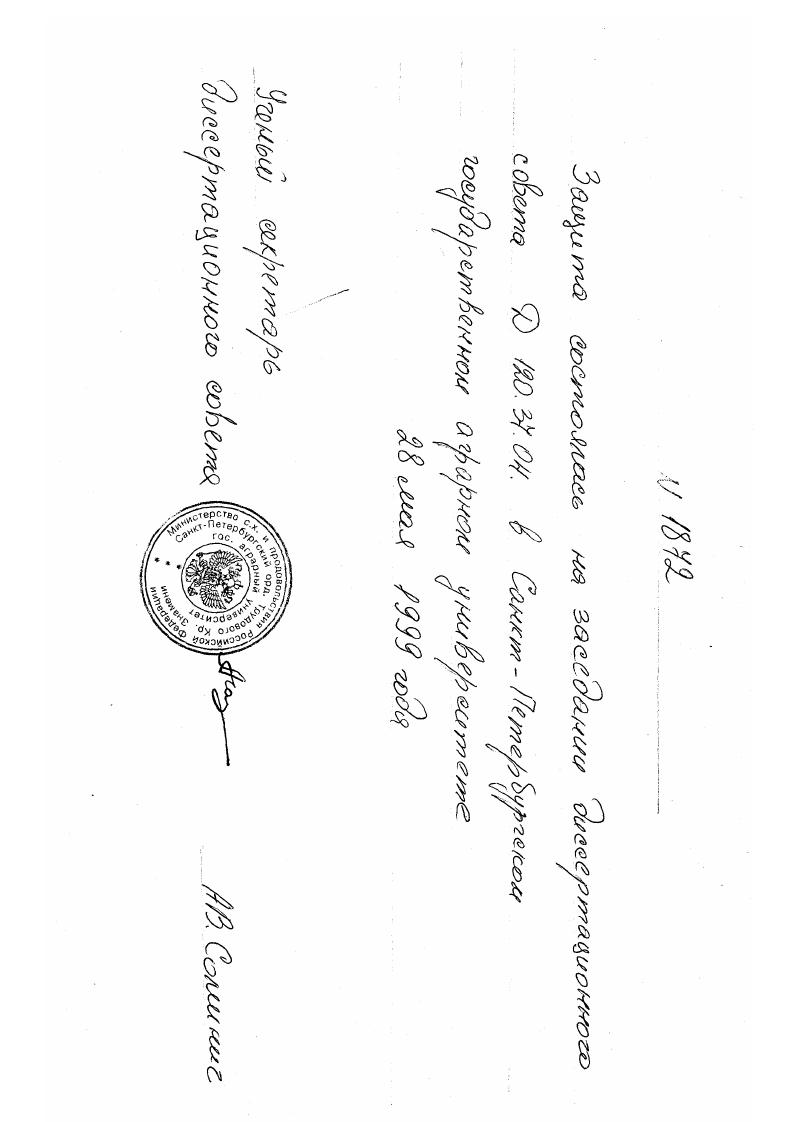 N 1872
Защита состоялась на заседании диссертационного
совета Д 120.37.04. в Санкт-Петербургском
государственном аграрном университете
28 мая 1999 года
Ученый секретарь
диссертационного совета
А.В.
Министерство с.х. и продовольствия Российской Федерации
Санкт-Петербургский орд. Трудового Кр. Знамени
гос. аграрный университет